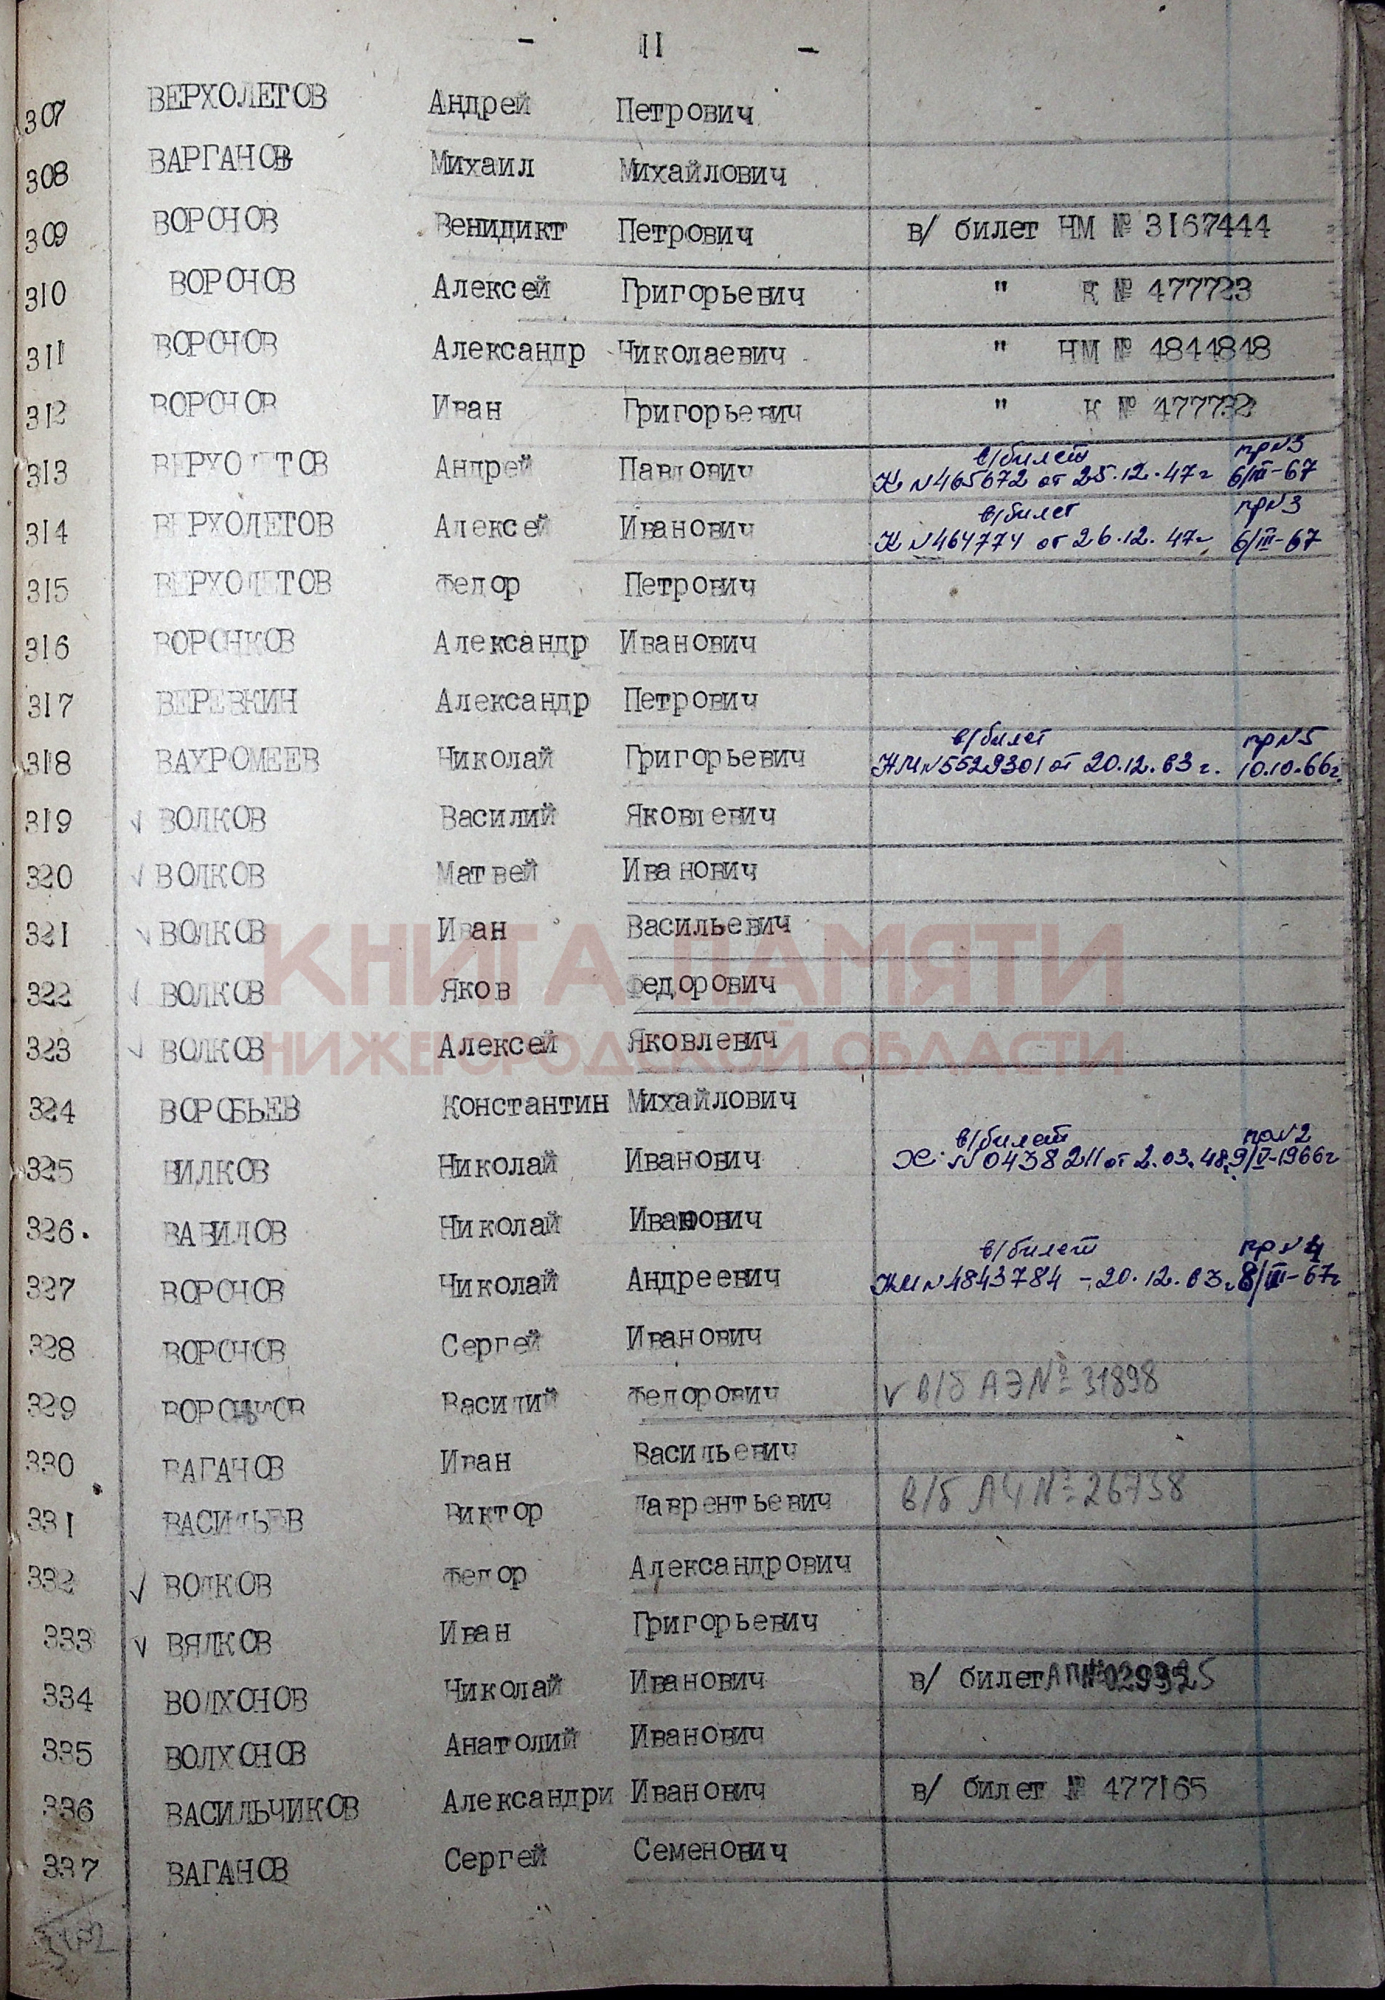 - 11 -
307 ВЕРХОЛЕТОВ Андрей Петрович
308 ВАРГАНОВ Михаил Михайлович
309 ВОРОНОВ Венидикт Петрович в/ билет НМ № 3167444
310 ВОРОНОВ Алексей Григорьевич " К № 477723
311 ВОРОНОВ Александр Николаевич " НМ № 4844848
312 ВОРОНОВ Иван Григорьевич " К № 477732
313 ВЕРХОЛЕТОВ Андрей Павлович в/билет К N 465672 от 25.12.47г пр N3 6/III-67
314 ВЕРХОЛЕТОВ Алексей Иванович в/билет К N 464774 от 26.12.47г пр N3 6/III-67
315 ВЕРХОЛЕТОВ Федор Петрович
316 ВОРОНКОВ Александр Иванович
317 ВЕРЕВКИН Александр Петрович
318 ВАХРОМЕЕВ Николай Григорьевич в/билет НМ N 5529301 от 20.12.63г. пр N5 10.10.66г
319 √ ВОЛКОВ Василий Яковлевич
320 √ ВОЛКОВ Матвей Иванович
321 √ ВОЛКОВ Иван Васильевич
322 √ ВОЛКОВ Яков Федорович
КНИГА ПАМЯТИ
323 √ ВОЛКОВ Алексей Яковлевич
НИЖЕГОРОДСКОЙ ОБЛАСТИ
324 ВОРОБЬЕВ Константин Михайлович
325 ВИЛКОВ Николай Иванович в/билет N 0438211 от 2.03.48 пр N2 9/V-1966г
326. ВАВИЛОВ Николай Иванович
327 ВОРОНОВ Николай Андреевич в/билет НМ N 4843784 - 20.12.63 пр N4 8/III-67г
328 ВОРОНОВ Сергей Иванович
329 Василий Федорович √ в/б АЭ № 31898
330 ВАГАНОВ Иван Васильевич
331 ВАСИЛЬЕВ Виктор Лаврентьевич в/б № 26738
332 √ ВОЛКОВ Федор Александрович
333 √ ВЯЛКОВ Иван Григорьевич
334 ВОЛХОНОВ Николай Иванович в/ билет
335 ВОЛХОНОВ Анатолий Иванович
336 ВАСИЛЬЧИКОВ Александри Иванович в/ билет № 477165
337 ВАГАНОВ Сергей Семенович